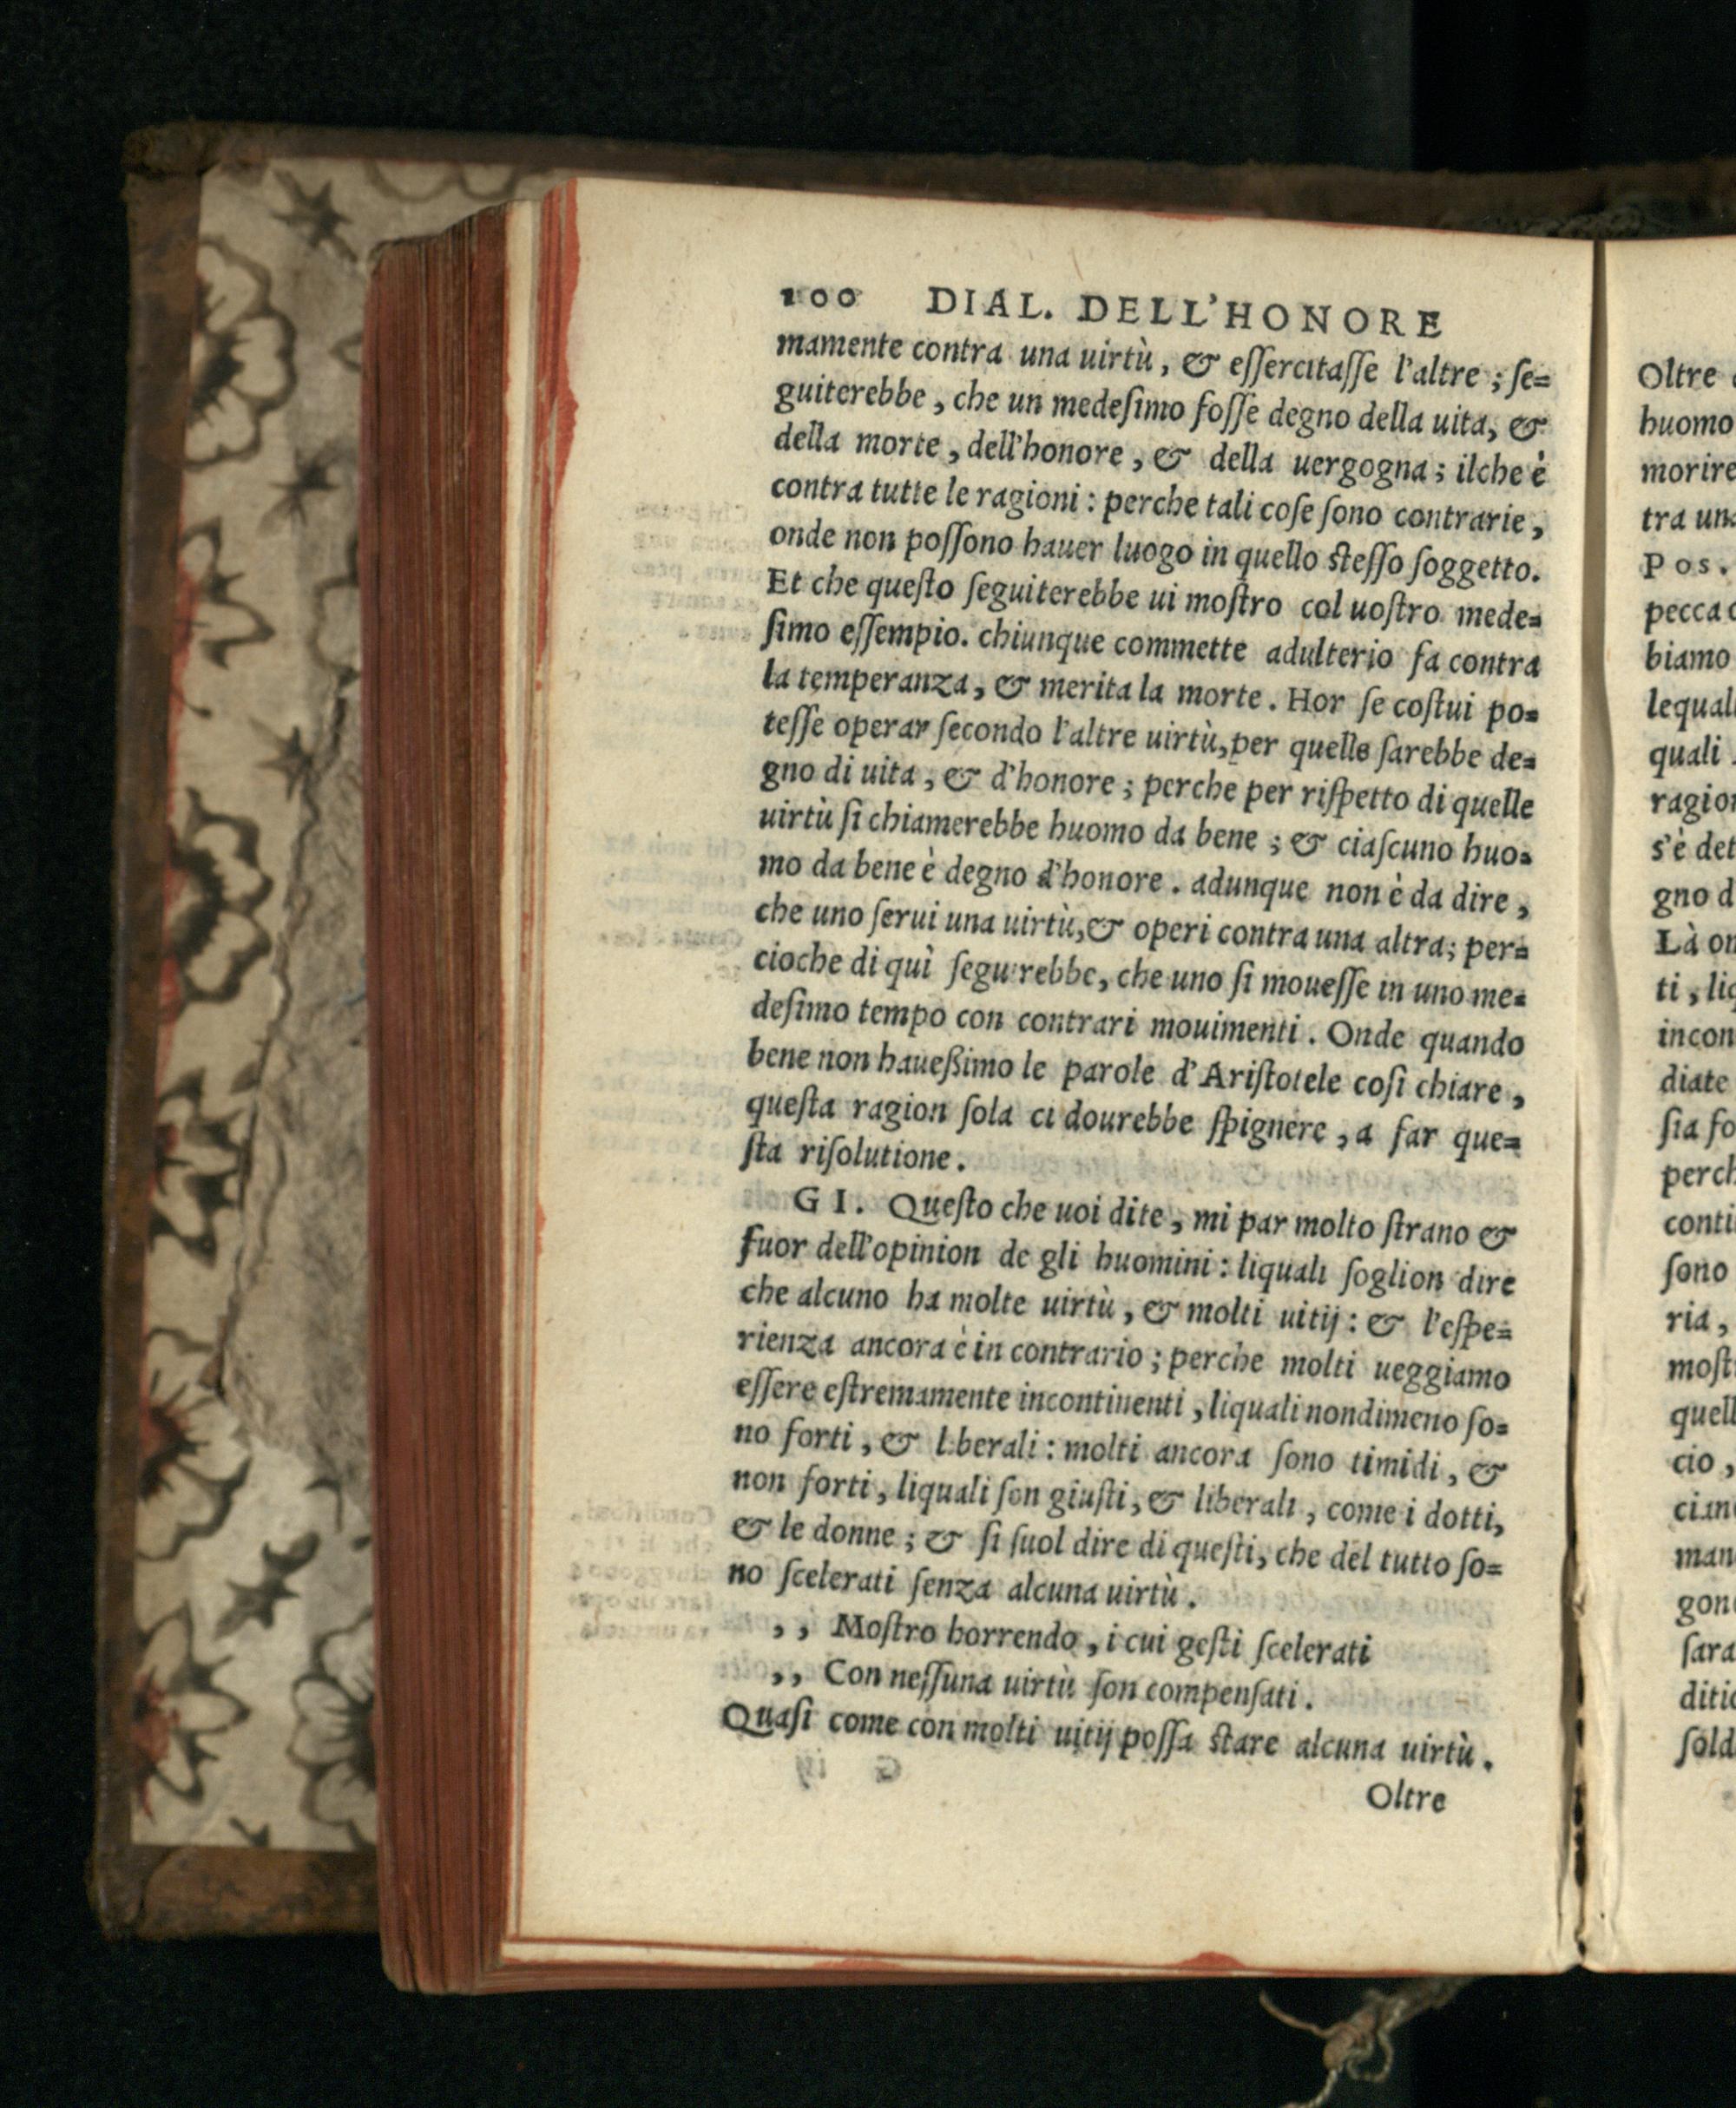 100 DIAL. DELL'HONORE
mamente contra una uirtù, & eſſercitaſſe l'altre; ſe=
guiterebbe, che un medeſimo foſſe degno della uita, &
della morte, dell'honore, & della uergogna; ilche è
contra tutte le ragioni: perche tali coſe ſono contrarie,
onde non poſſono hauer luogo in quello ſteſſo ſoggetto.
Et che queſto ſeguiterebbe ui moſtro col uoſtro mede=
ſimo eſſempio. chiunque commette adulterio fa contra
la temperanza, & merita la morte. Hor ſe coſtui po=
teſſe operar ſecondo l'altre uirtù, per quelle ſarebbe de=
gno di uita, & d'honore; perche per riſpetto di quelle
uirtù ſi chiamerebbe huomo da bene; & ciaſcuno huo=
mo da bene è degno d'honore. adunque non è da dire,
che uno ſerui una uirtù, & operi contra una altra; per=
cioche di quì ſegurrebbe, che uno ſi moueſſe in uno me=
deſimo tempo con contrari mouimenti. Onde quando
bene non haueßimo le parole d'Ariſtotele coſi chiare,
queſta ragion ſola ci dourebbe ſpignere, a far que=
ſta riſolutione.
GI. Queſto che uoi dite, mi par molto ſtrano &
fuor dell'opinion de gli huomini: liquali ſoglion dire
che alcuno ha molte uirtù, & molti uitij: & l'eſpe=
rienza ancora è in contrario; perche molti ueggiamo
eſſere eſtremamente incontinenti, liquali nondimeno ſo=
no forti, & liberali: molti ancora ſono timidi, &
non forti, liquali ſon giuſti, & liberali, come i dotti,
& le donne; & ſi ſuol dire di queſti, che del tutto ſo=
no ſcelerati ſenza alcuna uirtù.
,, Moſtro horrendo, i cui geſti ſcelerati
,, Con neſſuna uirtù ſon compenſati.
Quaſi come con molti uitij poſſa ſtare alcuna uirtù.
Oltre
Oltre
huomo
morire
tra una
Pos.
pecca
biamo
lequali
quali
ragion
s'è det
gno d
Là on
ti, liq
incon
diate
ſia fo
perch
conti
ſono
ria,
moſt
quell
cio,
man
gon
ſara
ditio
ſold